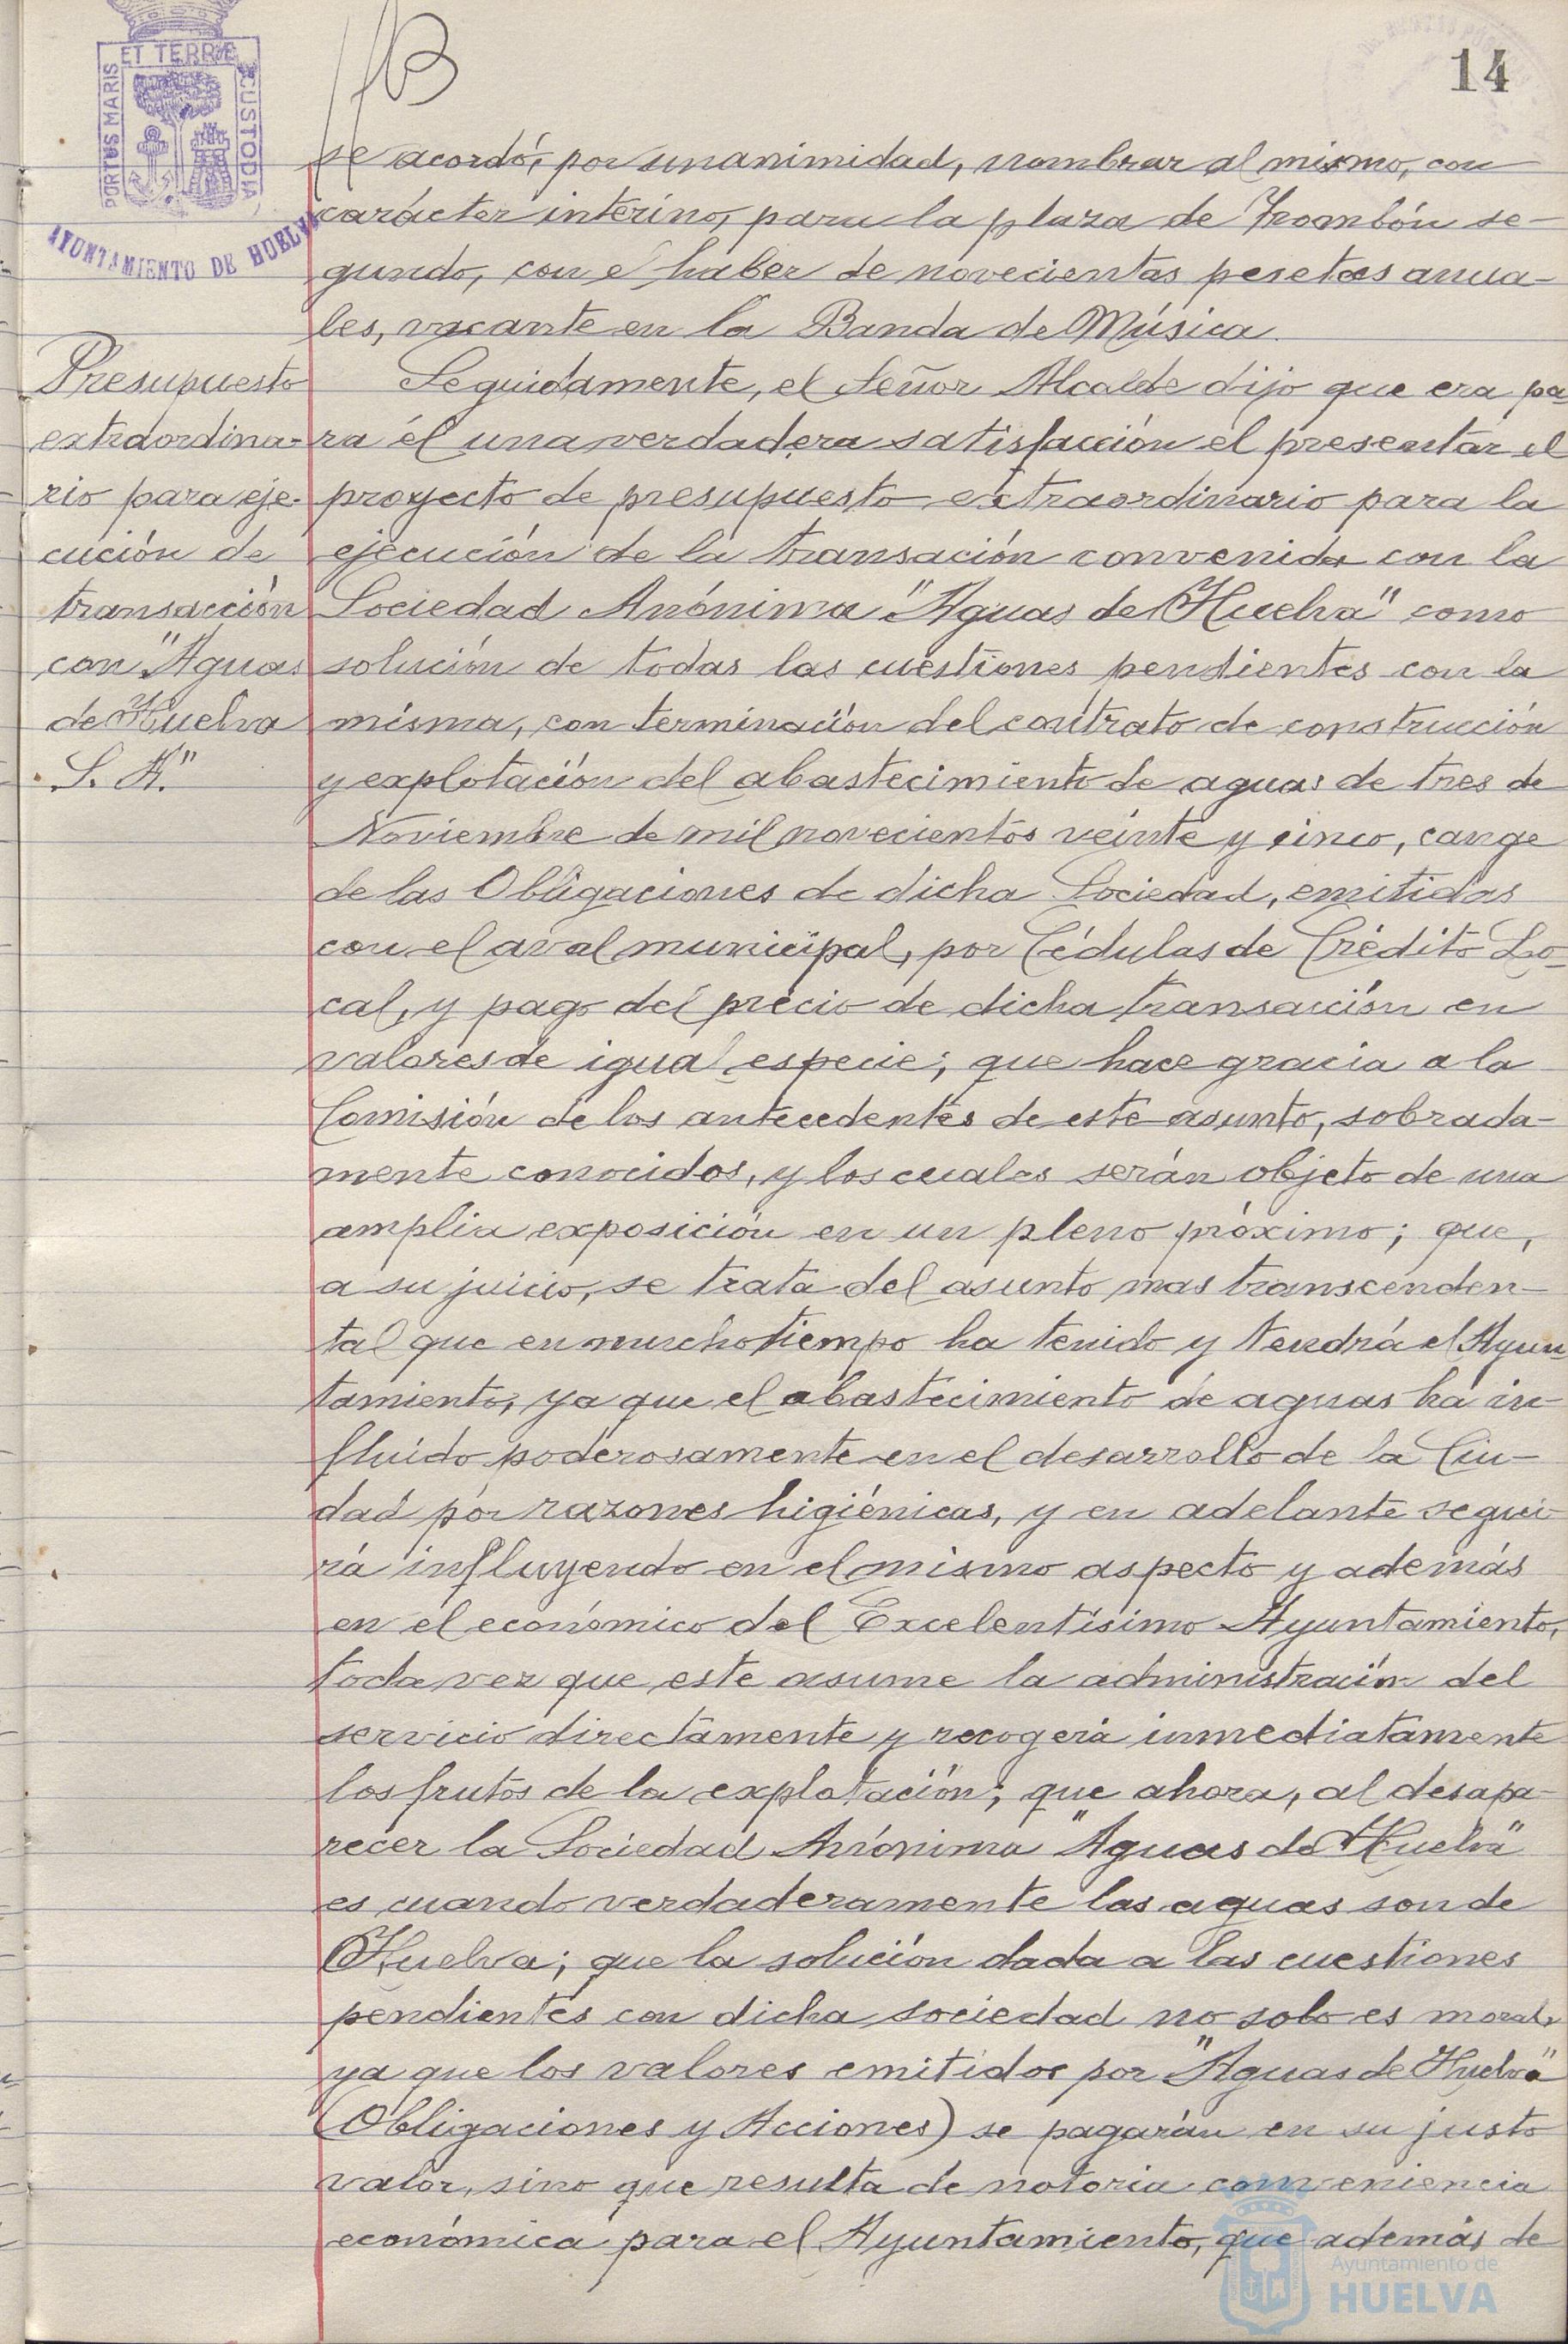 14
PORTUS MARIS ET TERRE CUSTODIA
AYUNTAMIENTO DE HUELVA
se acordó, por unanimidad, nombrar al mismo, con
carácter interino, para la plaza de Trombón se-
gundo, con el haber de novecientas pesetas anua-
les, vacante en la Banda de Música.
Presupuesto
extraordina-
rio para eje-
cución de
transacción
con "Aguas
de Huelva
S. A."
Seguidamente, el Señor Alcalde dijo que era pa
ra él una verdadera satisfacción el presentar el
proyecto de presupuesto extraordinario para la
ejecución de la transación convenida con la
Sociedad Anónima "Aguas de Huelva" como
solución de todas las cuestiones pendientes con la
misma, con terminación del contrato de construcción
y explotación del abastecimiento de aguas de tres de
Noviembre de mil novecientos veinte y cinco, cange
de las Obligaciones de dicha Sociedad, emitidas
con el aval municipal, por Cédulas de Crédito Lo-
cal, y pago del precio de dicha transacción en
valores de igual especie; que hace gracia a la
Comisión de los antecedentes de este asunto, sobrada-
mente conocidos, y los cuales serán objeto de una
amplia exposición en un pleno próximo; que,
a su juicio, se trata del asunto mas transcenden-
tal que en mucho tiempo ha tenido y tendrá el Ayun-
tamiento, ya que el abastecimiento de aguas ha in-
fluido poderosamente en el desarrollo de la Ciu-
dad por razones higiénicas, y en adelante segui-
rá influyendo en el mismo aspecto y además
en el económico del Excelentísimo Ayuntamiento,
toda vez que este asume la administración del
servicio directamente y recogerá inmediatamente
los frutos de la explotación; que ahora, al desapa-
recer la Sociedad Anónima "Aguas de Huelva"
es cuando verdaderamente las aguas son de
Huelva; que la solución dada a las cuestiones
pendientes con dicha sociedad no solo es moral,
ya que los valores emitidos por "Aguas de Huelva"
(Obligaciones y Acciones) se pagarán en su justo
valor, sino que resulta de notoria conveniencia
económica para el Ayuntamiento, que además de
Ayuntamiento de
HUELVA